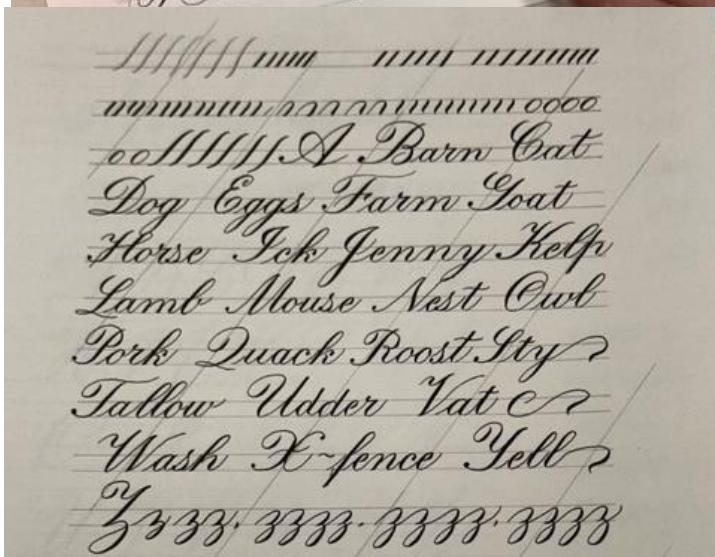 oooo
oo A Barn Cat
Dog Eggs Farm Goat
Horse Ick Jenny Kelp
Lamb Mouse Nest Owl
Pork Quack Roost Sty
Tallow Udder Vat
Wash X-fence Yell
Zzzz. zzzz. zzzz. zzzz